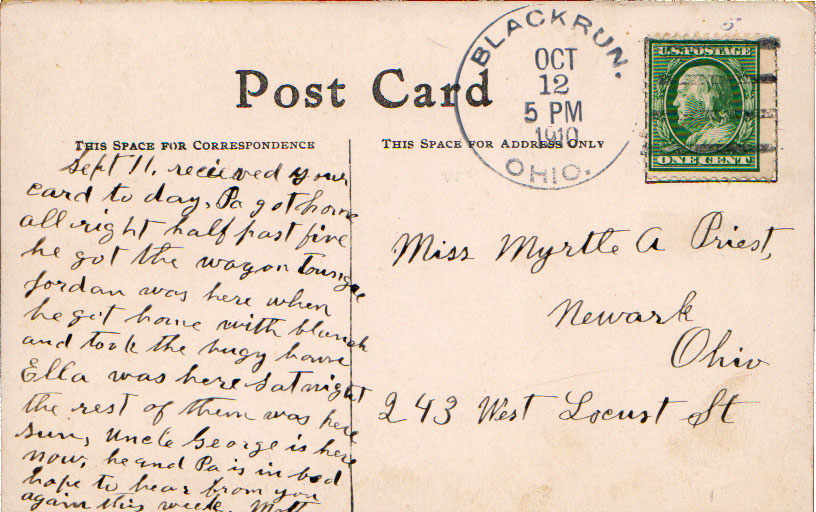 BLACKRUN.
OCT
12
5 PM
1910
OHIO.
U.S. POSTAGE
ONE CENT
Post Card
THIS SPACE FOR CORRESPONDENCE
THIS SPACE FOR ADDRESS ONLY
Sept 11, recieved your
card to day, Pa got home
all right half past five
he got the wagon toungue
Jordan was here when
he got home with blanch
and took the bugy home
Ella was here Sat night
the rest of them was here
Sun, Uncle George is here
now, he and Pa is in bed
hope to hear from you
again this week,
Miss Myrtle A Priest,
Newark
Ohio
243 West Locust St